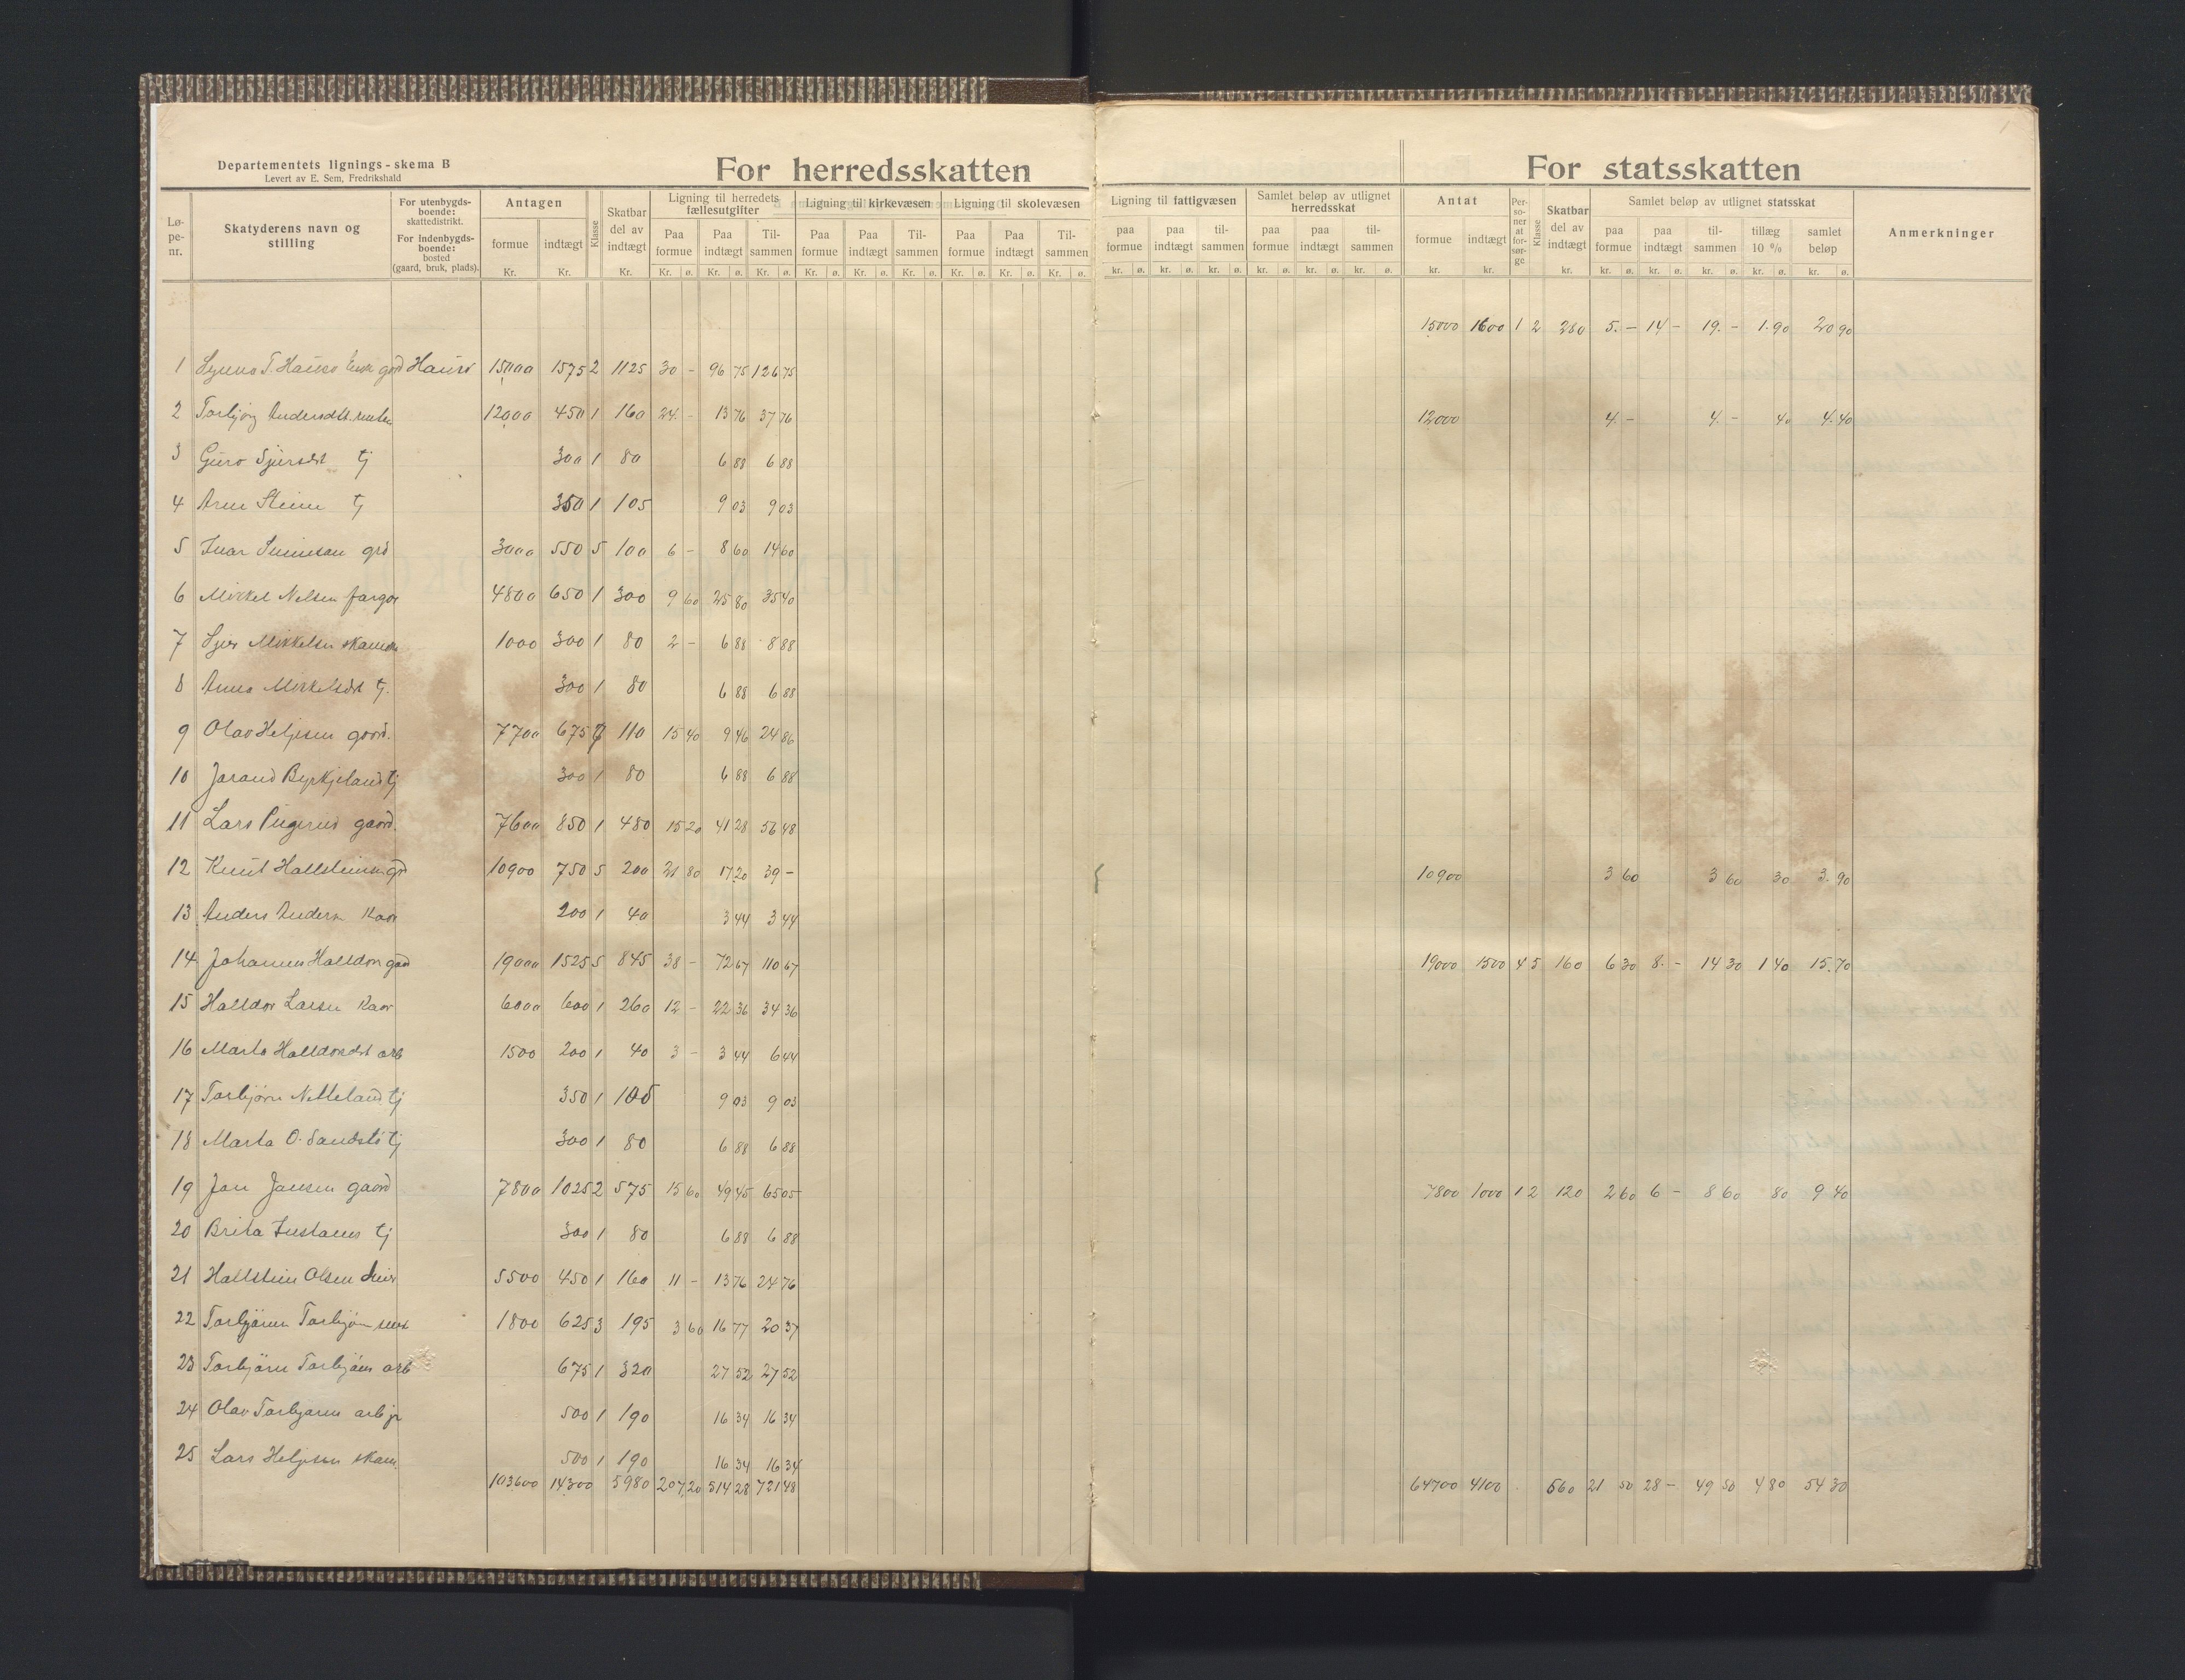 Departementets lignings-skema B
Levert av E. Sem, Fredrikshald
For herredsskatten
Lø-pe-nr.
Skatyderens navn og stilling
For utenbygds-boende: skattedistrikt.
For indenbygds-boende: bosted (gaard, bruk, plads).
Antagen
formue Kr.
indtægt Kr.
Klasse
Skatbar del av indtægt Kr.
Ligning til herredets fællesutgifter
Paa formue Kr. ø. Paa indtægt Kr. ø. Til-sammen Kr. ø.
Ligning til kirkevæsen
Paa formue Kr. ø. Paa indtægt Kr. ø. Til-sammen Kr. ø.
Ligning til skolevæsen
Paa formue Kr. ø. Paa indtægt Kr. ø. Til-sammen Kr. ø.
1 T. Hauso Hauso 15000 1575 2 1125 30 - 96 75 126 75
2 Torbjørg Andersdtt. 12000 450 1 160 24 - 13 76 37 76
3 Guro Sjursdt tj 300 1 80 6 88 6 88
4 Arne Steine tj 350 1 105 9 03 9 03
5 Ivar grd 3000 550 5 100 6 - 8 60 14 60
6 Mikkel Nelsen 4800 650 1 300 9 60 25 80 35 40
7 Mikkelsen 1000 300 1 80 2 - 6 88 8 88
8 Anna Mikkelsdt tj. 300 1 80 6 88 6 88
9 Olav Heljesen gaard. 7700 675 7 110 15 40 9 46 24 86
10 Jarand Byrkjeland tj 300 1 80 6 88 6 88
11 Lars gaard. 7600 850 1 480 15 20 41 28 56 48
12 Knut Hallsteinsen grd 10900 750 5 200 21 80 17 20 39 -
13 Anders Andersn Kaar 200 1 40 3 44 3 44
14 Johannes Halldors gaard 19000 1525 5 845 38 - 72 67 110 67
15 Halldor Larsen Kaar 6000 600 1 260 12 - 22 36 34 36
16 Marta Halldorsdt arb 1500 200 1 40 3 - 3 44 6 44
17 Torbjørn Netteland tj 350 1 105 9 03 9 03
18 Marta O. Sandstø tj 300 1 80 6 88 6 88
19 Jon Jonsen gaard 7800 1025 2 575 15 60 49 45 65 05
20 Brita tj 300 1 80 6 88 6 88
21 Hallstein Olsen 5500 450 1 160 11 - 13 76 24 76
22 Torbjørn Torbjørn 1800 625 3 195 3 60 16 77 20 37
23 Torbjørn Torbjørns arb 675 1 320 27 52 27 52
24 Olav Torbjørns arb jr 500 1 190 16 34 16 34
25 Lars Heljesen skom. 500 1 190 16 34 16 34
103600 14300 5980 207,20 514 28 721 48
For statsskatten
Ligning til fattigvæsen
paa formue kr. ø. paa indtægt kr. ø. til-sammen kr. ø.
Samlet beløp av utlignet herredsskat
paa formue kr. ø. paa indtægt kr. ø. til-sammen kr. ø.
Antat
formue kr.
indtægt kr.
Per-so-ner at for-sør-ge
Klasse
Skatbar del av indtægt kr.
Samlet beløp av utlignet statsskat
paa formue kr. ø. paa indtægt kr. ø. til-sammen kr. ø. tillæg 10 % kr. ø. samlet beløp kr. ø.
Anmerkninger
15000 1600 1 2 280 5. - 14 - 19. - 1.90 20 90
12000 4. - 4. - 40 4.40
10900 3 60 3 60 30 3.90
19000 1500 4 5 160 6 30 8. - 14 30 1 40 15.70
7800 1000 1 2 120 2 60 6 - 8 60 80 9 40
64700 4100 560 21 50 28 - 49 50 4 80 54 30